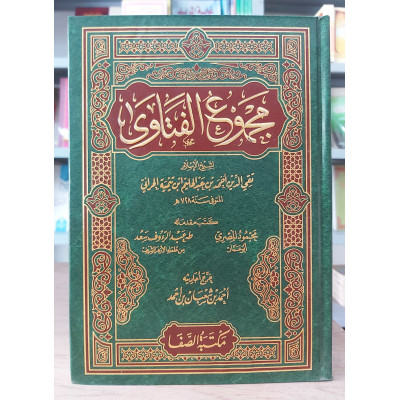 مجموع الفتاوى
لشيخ الإسلام
تقي الدين أحمد بن عبد الحليم ابن تيمية الحراني
المتوفى سنة ٧٢٨ هـ
كتب مقدمته
محمود المصري طه عبد الرؤوف سعد
أبو عمار من علماء الأزهر الشريف
خرج أحاديثه
أحمد بن شعبان بن أحمد
مكتبة الصفا